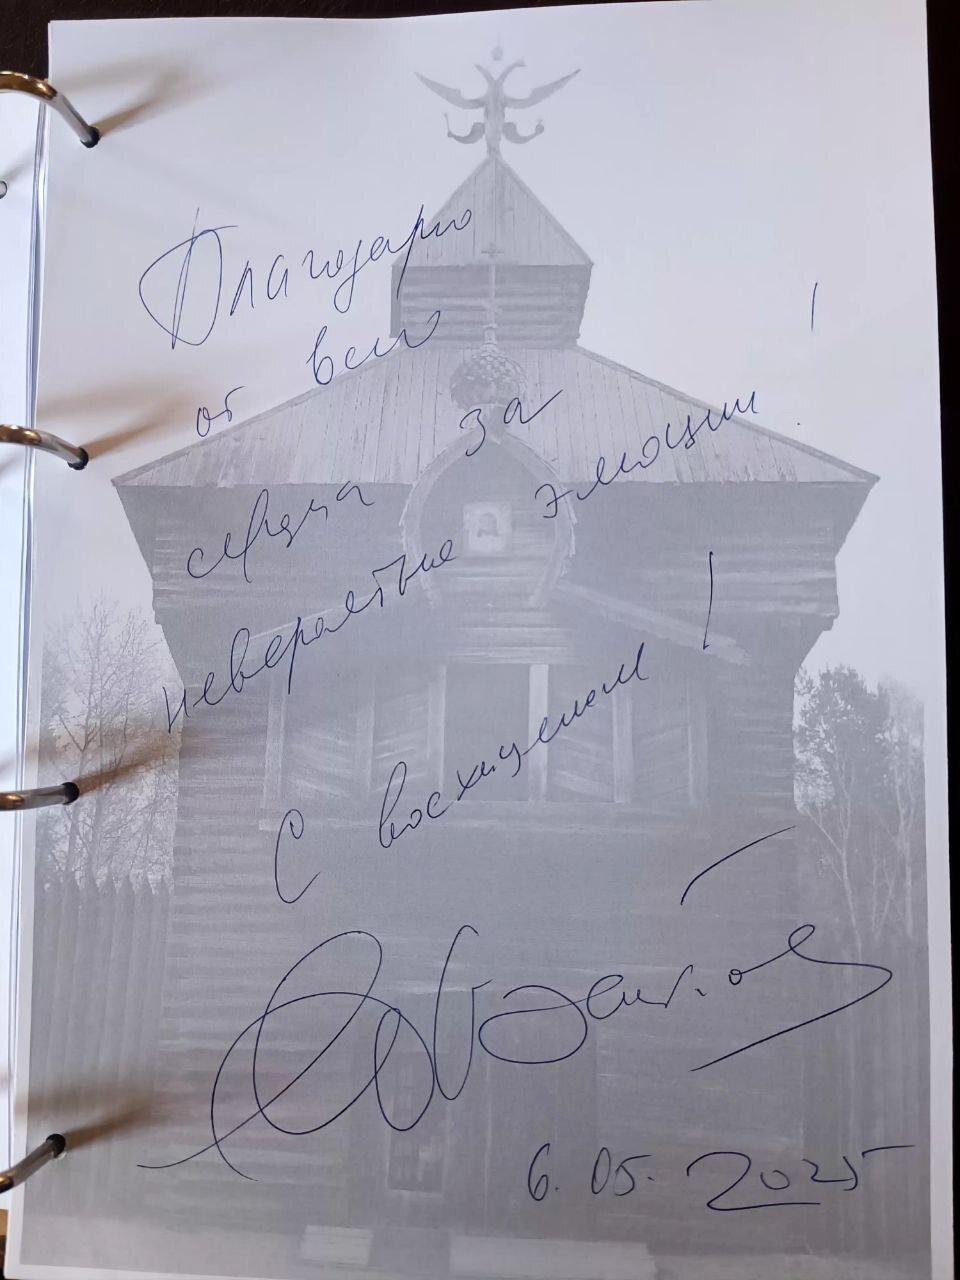 Благодарю
от всего
сердца за
невероятные эмоции!
С восхищением!
6.05.2025